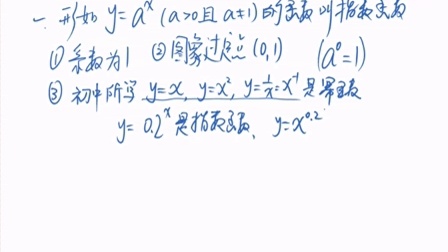 一. 形如 y=aˣ (a>0且a≠1) 的函数叫指数函数
① 系数为1 ② 图象过定点 (0,1) (a⁰=1)
③ 初中所学 y=x, y=x², y=1/x=x⁻¹ 是幂函数
y=0.2ˣ 是指数函数, y=x⁰·²